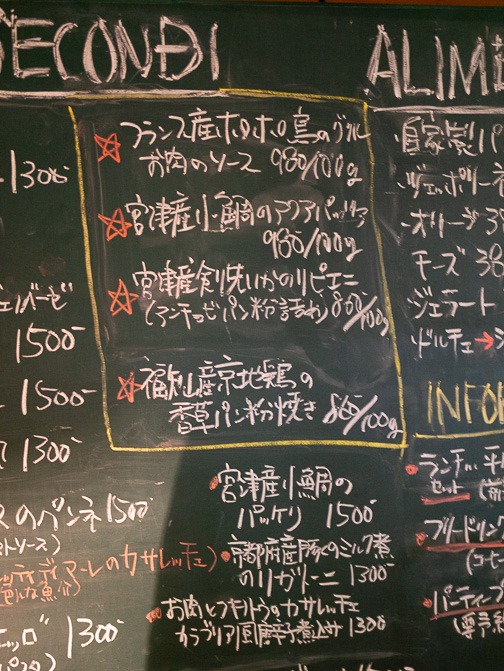 SECONDI
ALIM
フランス産ホロホロ鳥のグリル
お肉のソース 980/100g
宮津産小鯛のアクアパッツァ
980/100g
宮津産剣先いかのリピエニ
(アンチョビパン粉詰め) 860/100g
福知山産京地鶏の
香草パン粉焼き 860/100g
1300
1500-
1500-
1300
のペンネ 1500
ソース)
のカサレッチェ)
1300
宮津産小鯛の
パッケリ 1500
京都府産豚のミルク煮
のリガトーニ 1300
お肉とフキノトウのカサレッチェ
カラブリア風辛子煮込み 1300
自家製パ
オリーブ 3
チーズ 38
ジェラート
ドルチェ→
INFO
ランチ
セット
フリードリン
(コーヒ
パーティープ